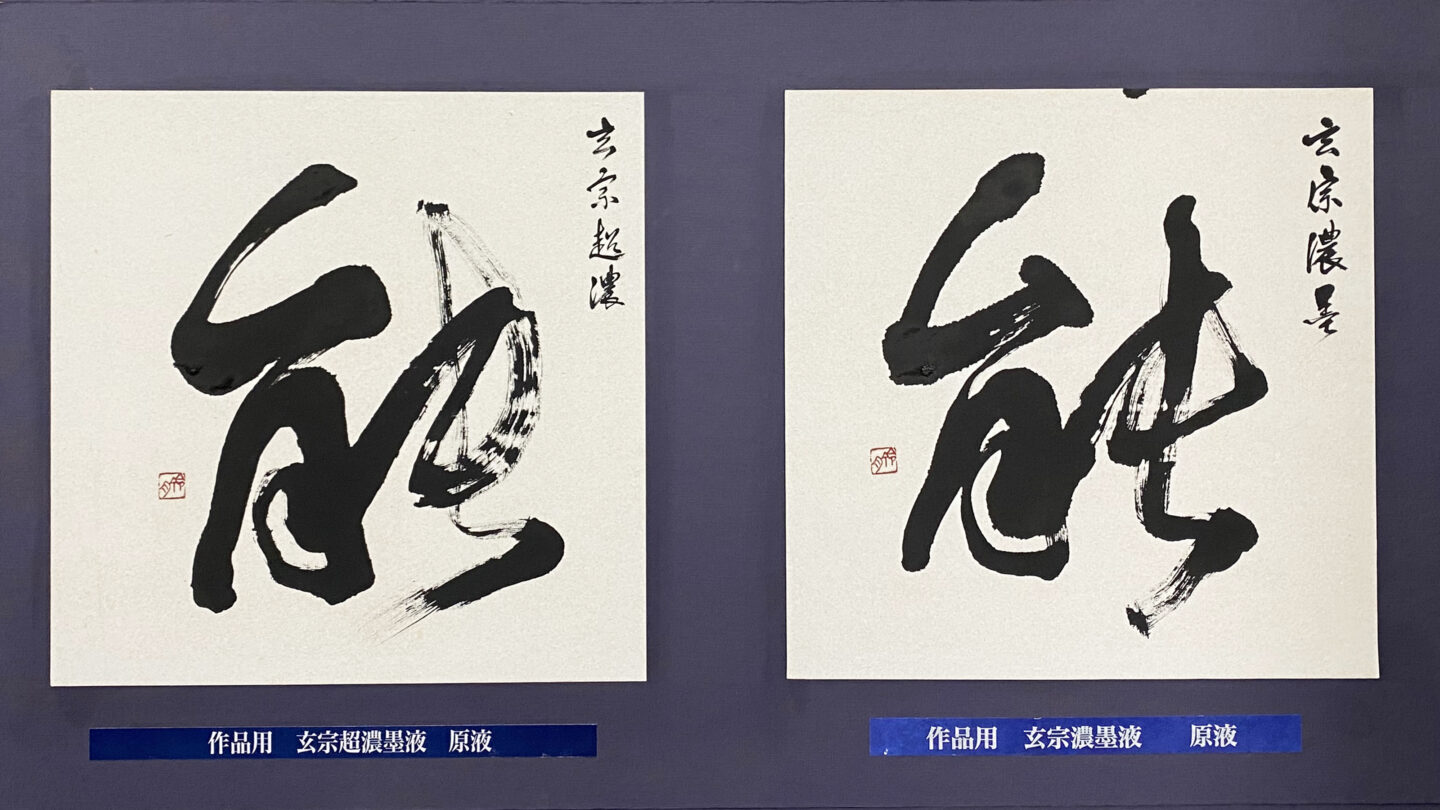 玄宗超濃
能
作品用　玄宗超濃墨液　原液
玄宗濃墨
能
作品用　玄宗濃墨液　原液